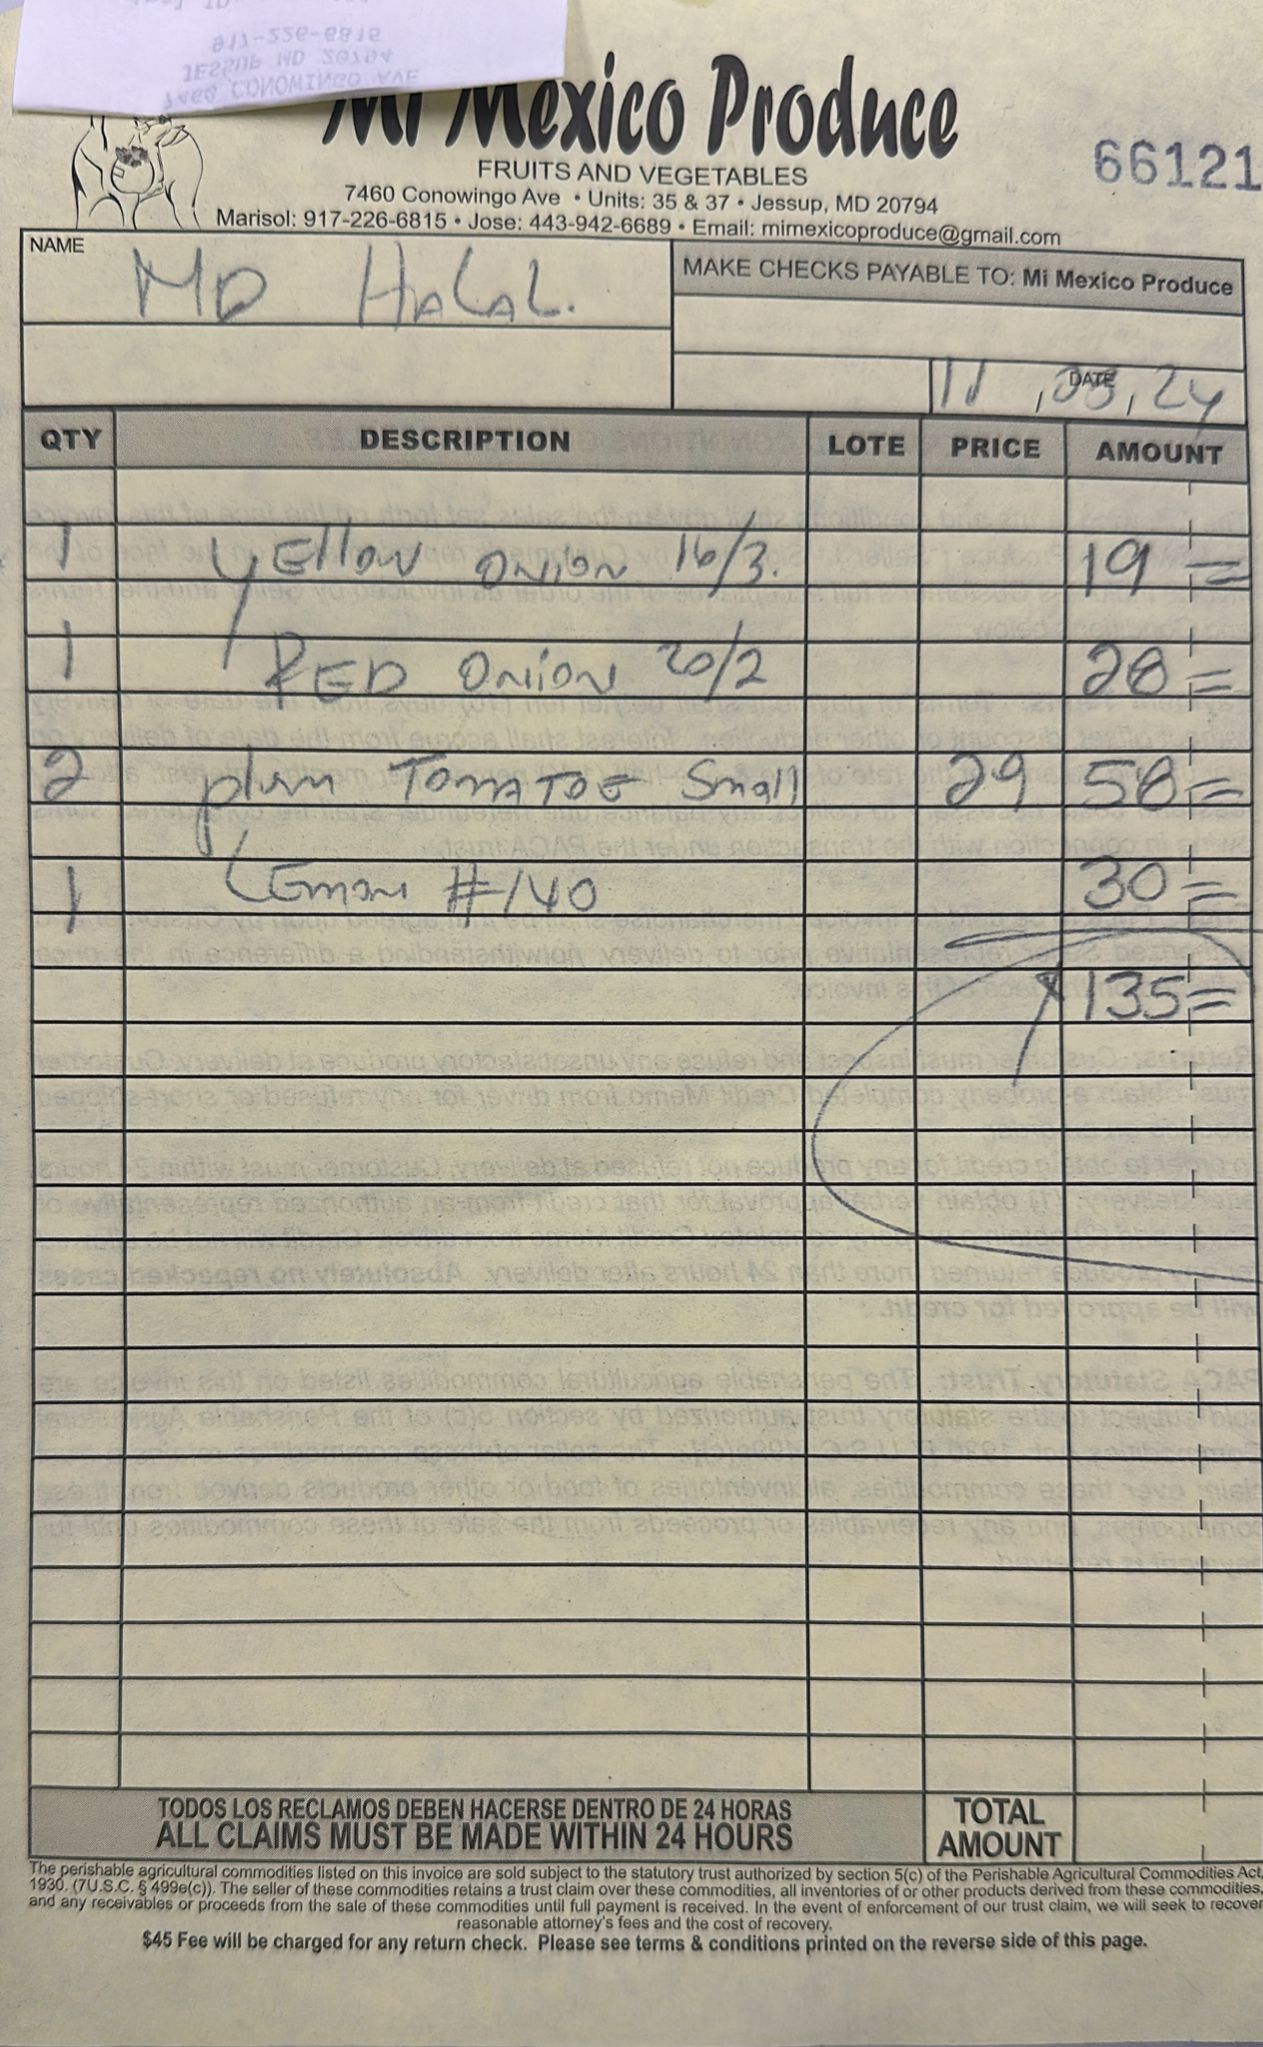 917-226-6815
JESSUP MD 20794
7460 CONOWINGO AVE
Mi Mexico Produce
66121
FRUITS AND VEGETABLES
7460 Conowingo Ave • Units: 35 & 37 • Jessup, MD 20794
Marisol: 917-226-6815 • Jose: 443-942-6689 • Email: mimexicoproduce@gmail.com
NAME
MD HALAL.
MAKE CHECKS PAYABLE TO: Mi Mexico Produce
DATE
QTY DESCRIPTION LOTE PRICE AMOUNT
1 YEllow ONION 16/3. 19 =
1 RED ONION 20/2 28 =
2 plum TOMATOE Small 29 58 =
1 LEmon #140 30 =
135 =
TODOS LOS RECLAMOS DEBEN HACERSE DENTRO DE 24 HORAS
ALL CLAIMS MUST BE MADE WITHIN 24 HOURS
TOTAL
AMOUNT
The perishable agricultural commodities listed on this invoice are sold subject to the statutory trust authorized by section 5(c) of the Perishable Agricultural Commodities Act,
1930. (7U.S.C. § 499e(c)). The seller of these commodities retains a trust claim over these commodities, all inventories of or other products derived from these commodities,
and any receivables or proceeds from the sale of these commodities until full payment is received. In the event of enforcement of our trust claim, we will seek to recover
reasonable attorney's fees and the cost of recovery.
$45 Fee will be charged for any return check. Please see terms & conditions printed on the reverse side of this page.